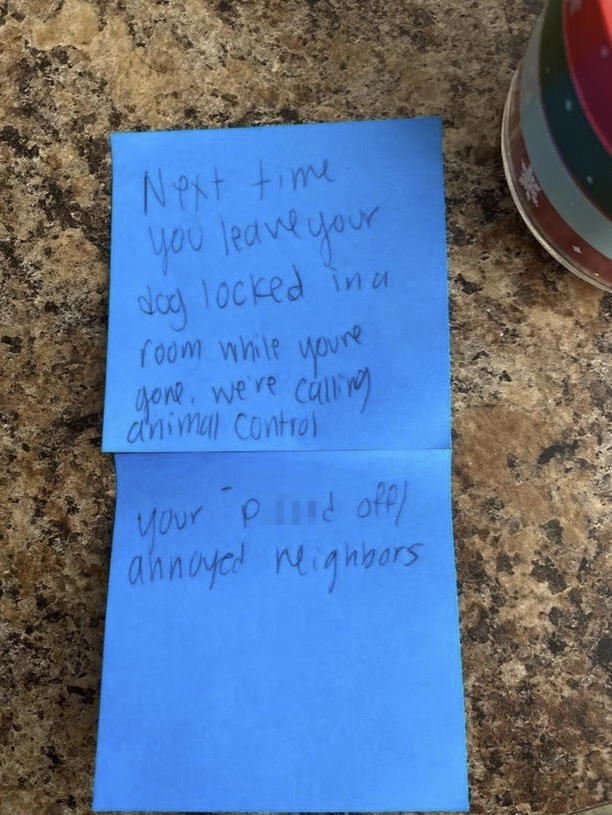 Next time
you leave your
dog locked in a
room while you're
gone. we're calling
animal control
your off/
annoyed neighbors